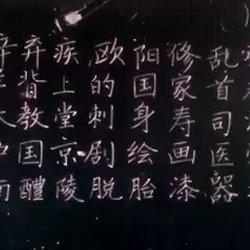 辛弃疾欧阳修乱
羊背上的国家首
大教堂刺身寿司
中国京剧绘画医
南醴陵脱胎漆器